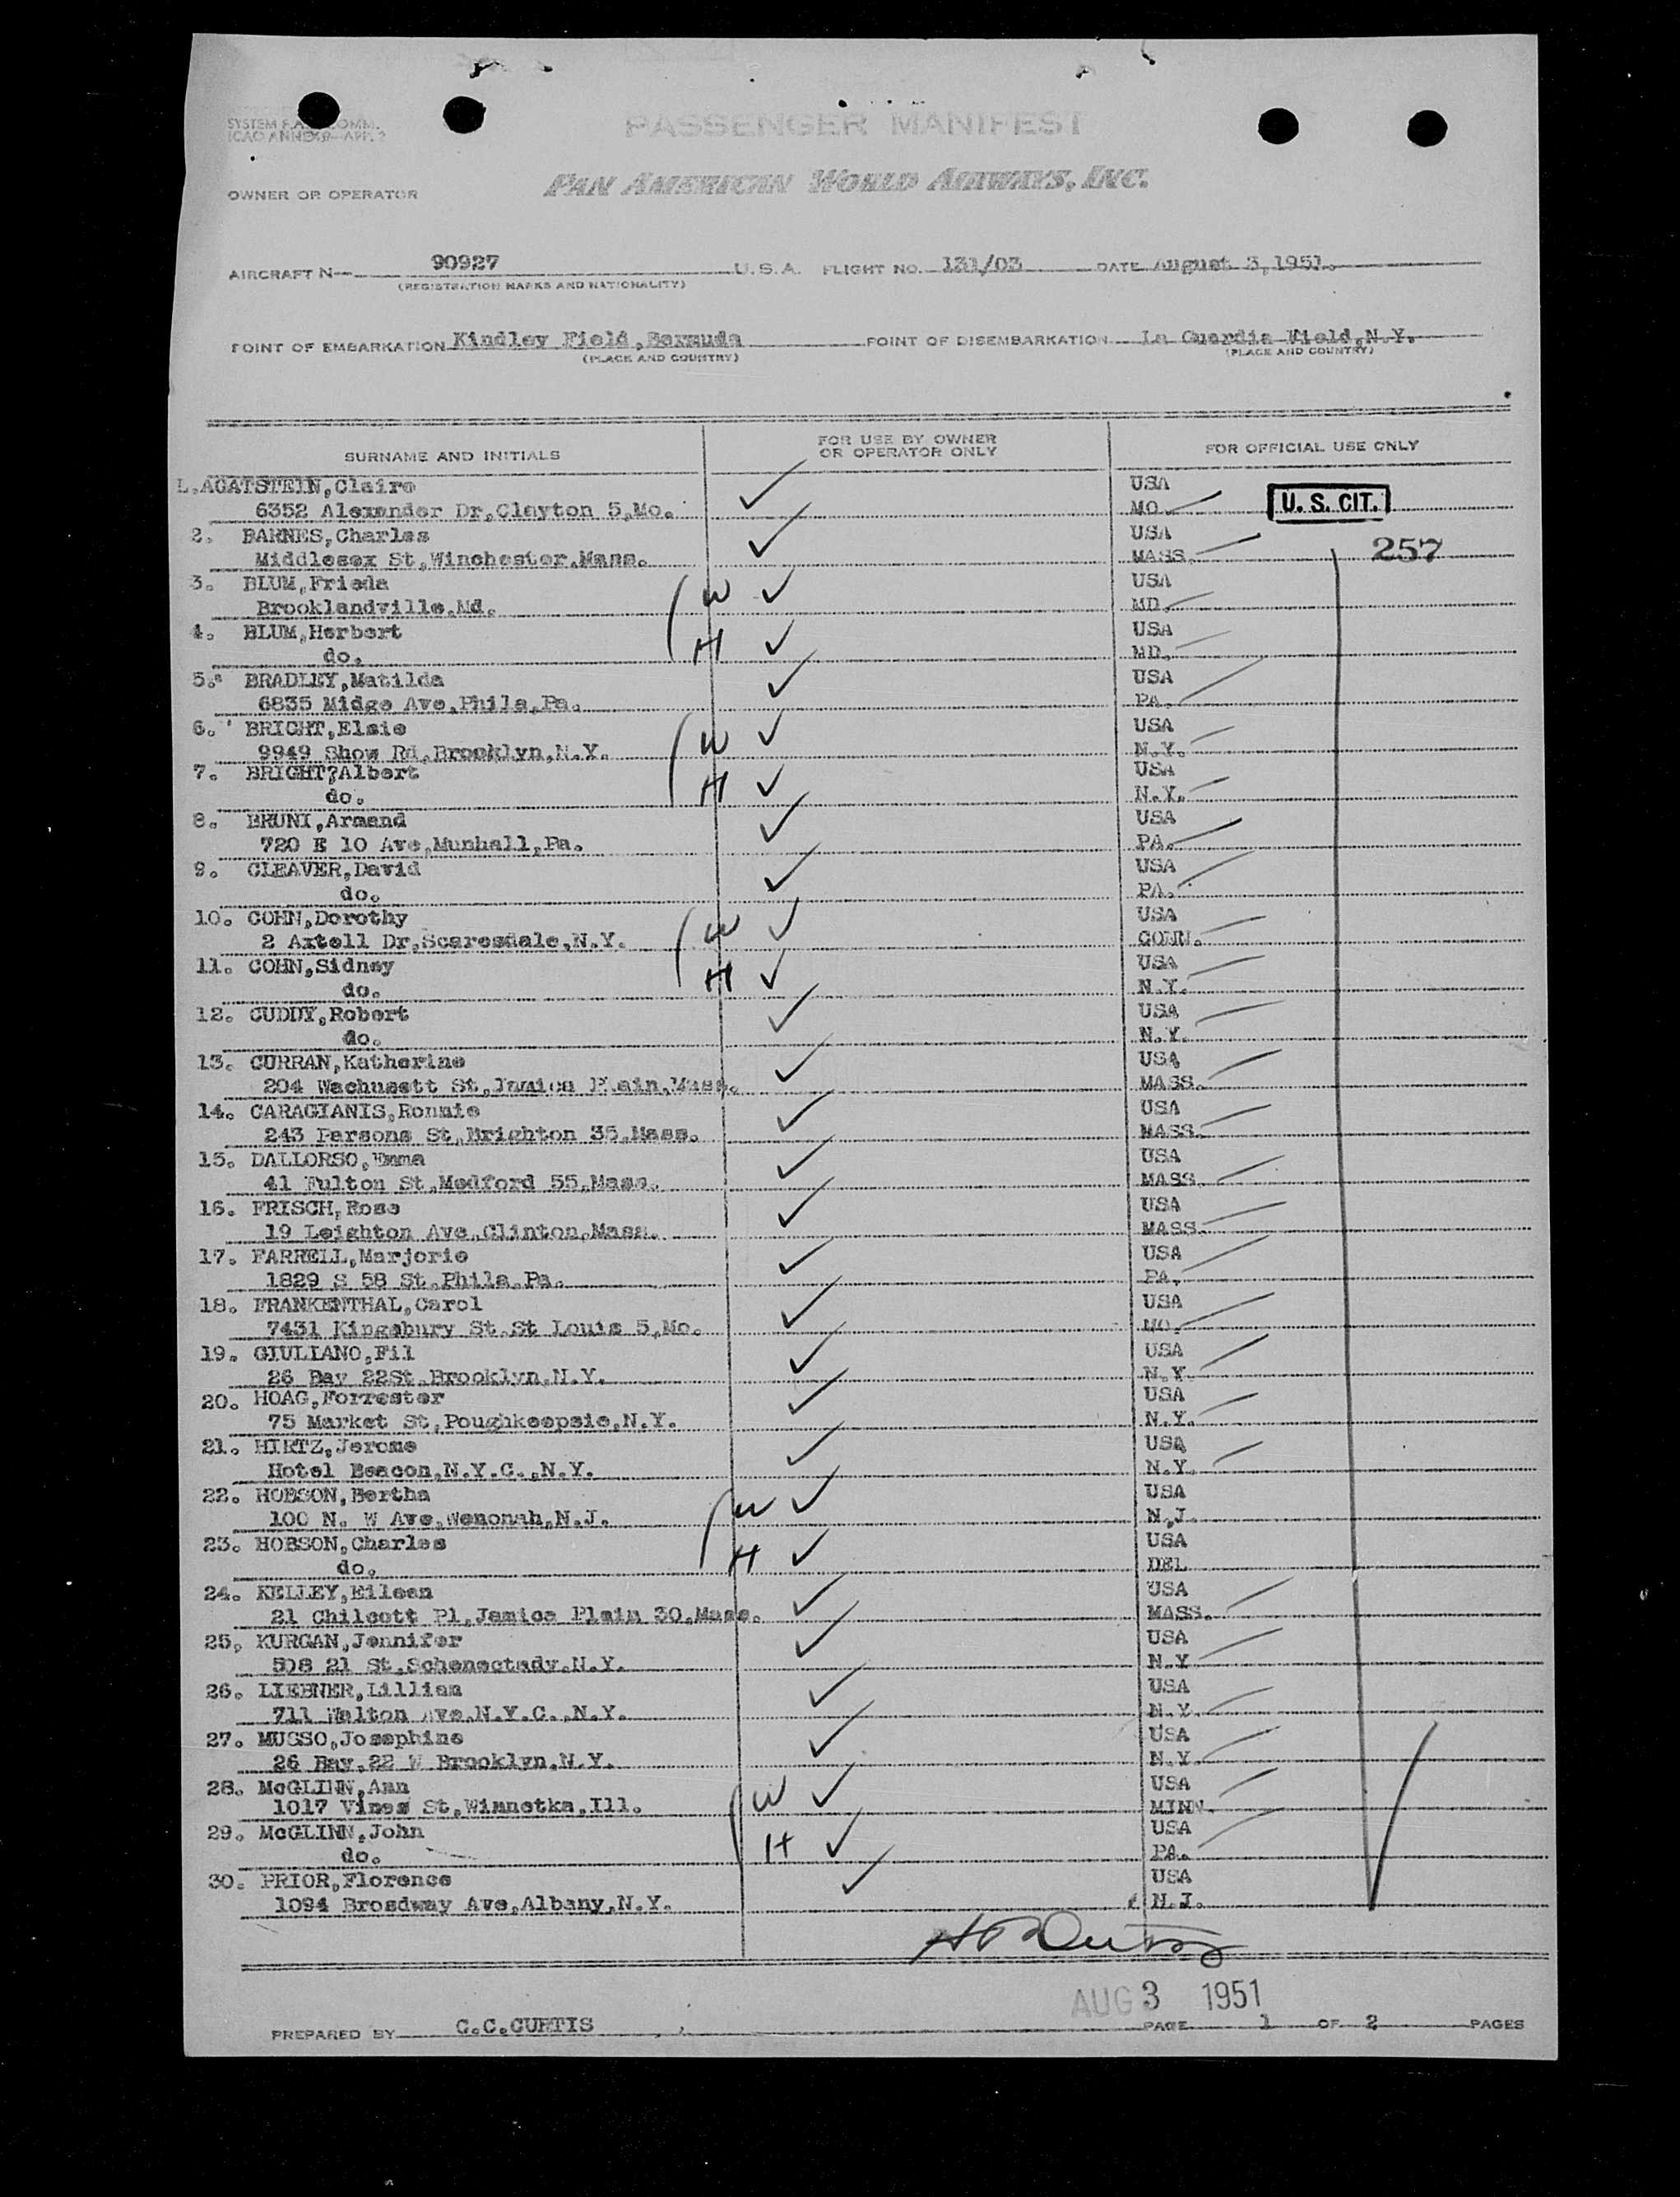 PASSENGER MANIFEST
ICAO ANNEX 9—APP. 2
OWNER OR OPERATOR PAN AMERICAN WORLD AIRWAYS, INC.
AIRCRAFT N— 90927 U.S.A. FLIGHT NO. 131/03 DATE August 3,1951.
(REGISTRATION MARKS AND NATIONALITY)
POINT OF EMBARKATION Kindley Field,Bermuda POINT OF DISEMBARKATION La Guardia Field,N.Y.
(PLACE AND COUNTRY) (PLACE AND COUNTRY)
SURNAME AND INITIALS FOR USE BY OWNER OR OPERATOR ONLY FOR OFFICIAL USE ONLY
1.AGATSTEIN,Claire USA
6352 Alexander Dr,Clayton 5,Mo. ✓ MO. U. S. CIT.
2. BARNES,Charles USA
Middlesex St,Winchester,Mass. ✓ MASS. 257
3. BLUM,Frieda W ✓ USA
Brooklandville,Md. MD.
4. BLUM,Herbert H ✓ USA
do. MD.
5. BRADLEY,Matilda ✓ USA
6835 Midge Ave,Phila,Pa. PA.
6. BRIGHT,Elsie W ✓ USA
9949 Show Rd,Brooklyn,N.Y. N.Y.
7. BRIGHT?Albert H ✓ USA
do. N.Y.
8. BRUNI,Armand ✓ USA
720 E 10 Ave,Munhall,Pa. PA.
9. CLEAVER,David ✓ USA
do. PA.
10. COHN,Dorothy W ✓ USA
2 Axtell Dr,Scaresdale,N.Y. CONN.
11. COHN,Sidney H ✓ USA
do. N.Y.
12. CUDDY,Robert ✓ USA
do. N.Y.
13. CURRAN,Katherine ✓ USA
204 Wachusett St,Jamica Plain,Mass. MASS.
14. CARAGIANIS,Ronnie ✓ USA
243 Parsons St,Brighton 35,Mass. MASS.
15. DALLORSO,Emma ✓ USA
41 Fulton St,Medford 55,Mass. MASS.
16. FRISCH,Rose ✓ USA
19 Leighton Ave,Clinton,Mass. MASS.
17. FARRELL,Marjorie ✓ USA
1829 S 58 St,Phila,Pa. PA.
18. FRANKENTHAL,Carol ✓ USA
7431 Kingsbury St,St Louis 5,Mo. MO.
19. GIULIANO,Fil ✓ USA
26 Bay 22St,Brooklyn,N.Y. N.Y.
20. HOAG,Forrester ✓ USA
75 Market St,Poughkeepsie,N.Y. N.Y.
21. HIRTZ,Jerome ✓ USA
Hotel Beacon,N.Y.C.,N.Y. N.Y.
22. HOBSON,Bertha W ✓ USA
100 N. W Ave,Wenonah,N.J. N.J.
23. HOBSON,Charles H ✓ USA
do. DEL
24. KELLEY,Eileen ✓ USA
21 Chilcott Pl,Jamica Plain 30,Mass. MASS.
25. KURGAN,Jennifer ✓ USA
508 21 St,Schenectady,N.Y. N.Y
26. LIEBNER,Lillian ✓ USA
711 Walton Ave,N.Y.C.,N.Y. N.Y.
27. MUSSO,Josephine ✓ USA
26 Bay,22 W Brooklyn,N.Y. N.Y.
28. McGLINN,Ann W ✓ USA
1017 Vines St,Winnetka,Ill. MINN.
29. McGLINN,John H ✓ USA
do. PA.
30. PRIOR,Florence ✓ USA
1094 Broadway Ave,Albany,N.Y. N.J.
AUG 3 1951
PREPARED BY C.C.CURTIS PAGE 1 OF 2 PAGES